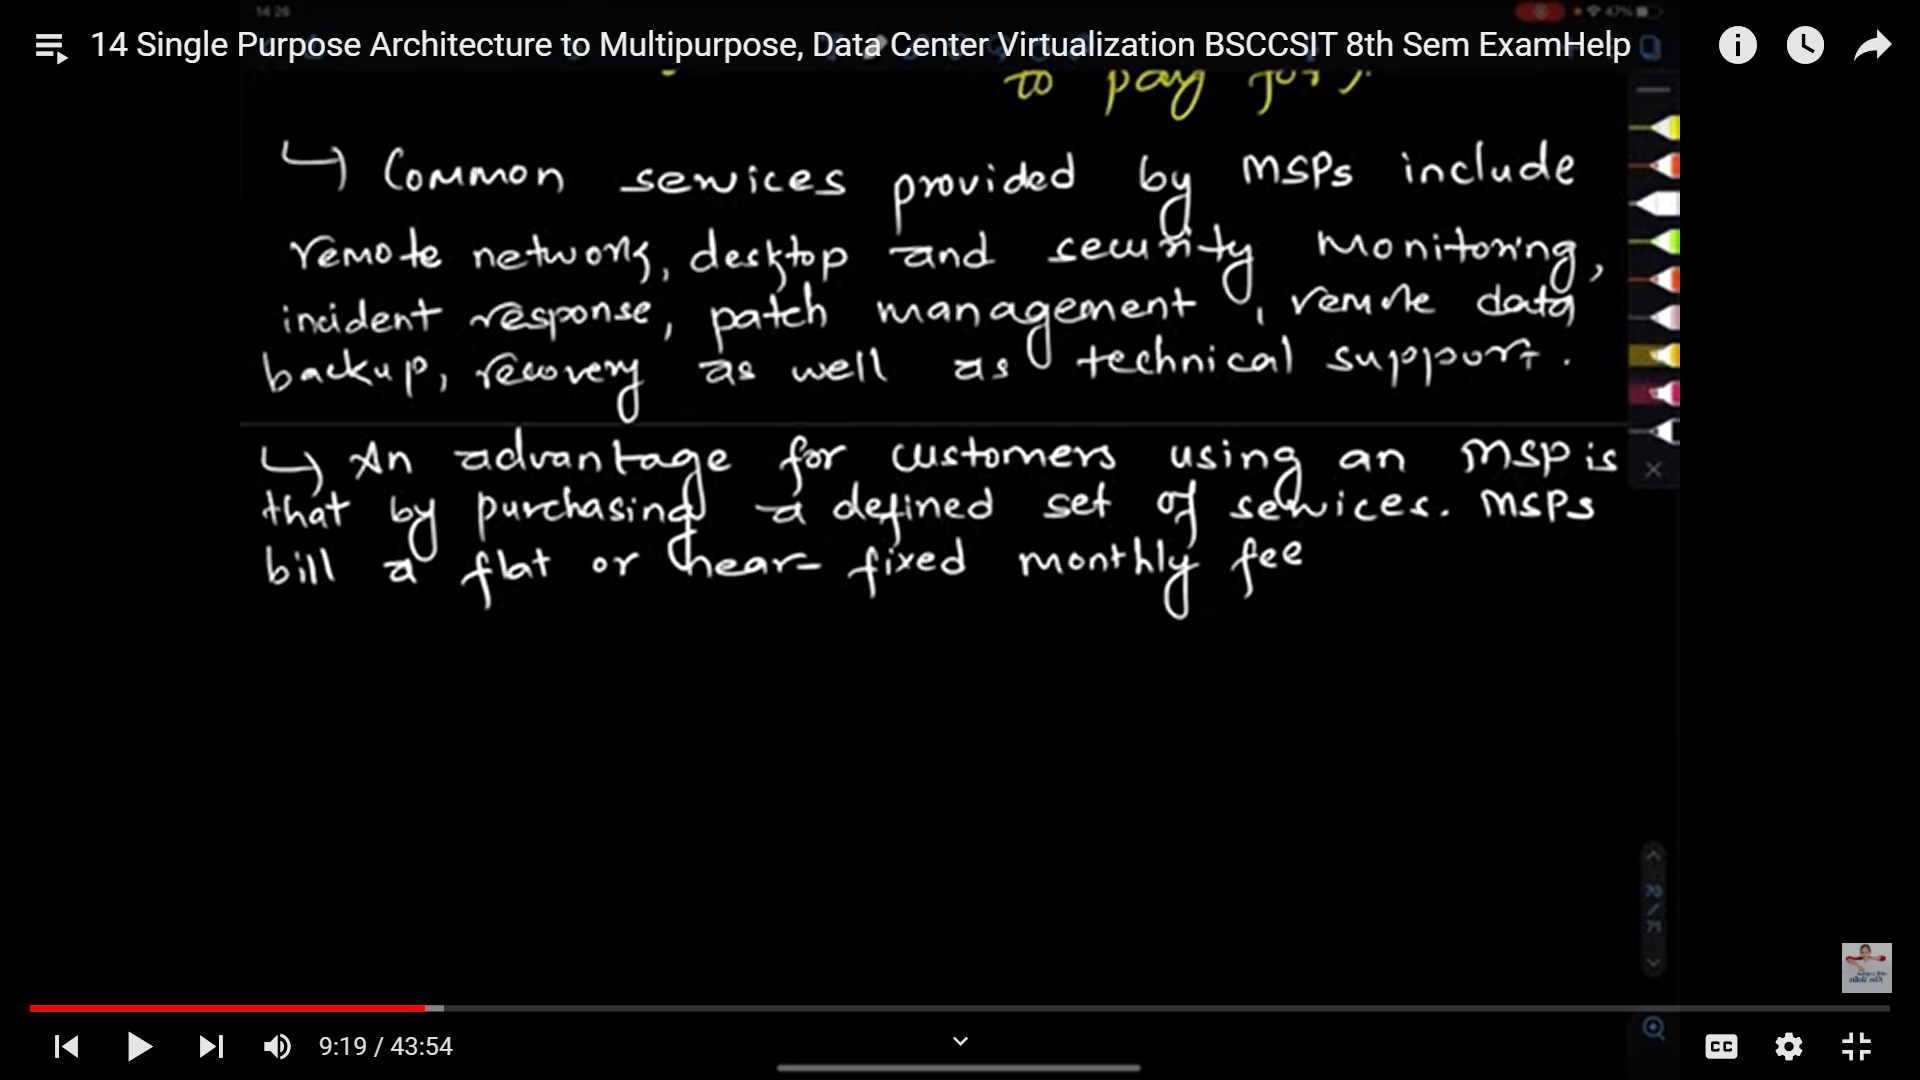 14:26
47%
14 Single Purpose Architecture to Multipurpose, Data Center Virtualization BSCCSIT 8th Sem ExamHelp
to pay for).
↳ Common services provided by MSPs include
remote network, desktop and security monitoring,
incident response, patch management, remote data
backup, recovery as well as technical support.
↳ An advantage for customers using an MSP is
that by purchasing a defined set of services. MSPs
bill a flat or near-fixed monthly fee
9:19 / 43:54
CC